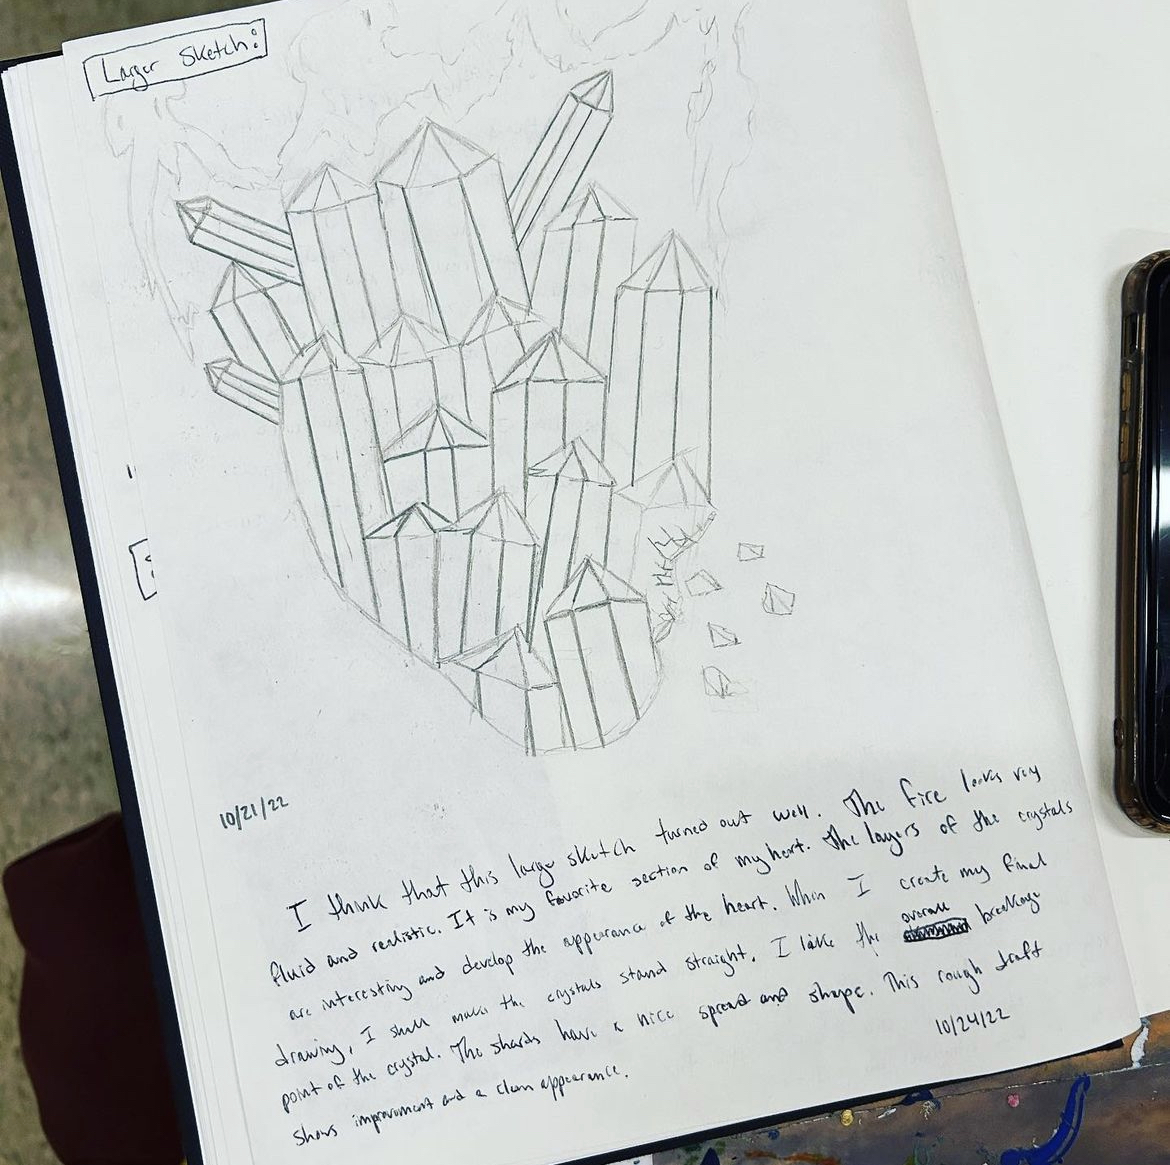 Larger Sketch:
10/21/22
I think that this large sketch turned out well. The fire looks very
fluid and realistic. It is my favorite section of my heart. The layers of the crystals
are interesting and develop the appearance of the heart. When I create my final
drawing, I shall make the crystals stand straight. I like the overall breaking
point of the crystal. The shards have a nice spread and shape. This rough draft
shows improvement and a clean appearance.
10/24/22